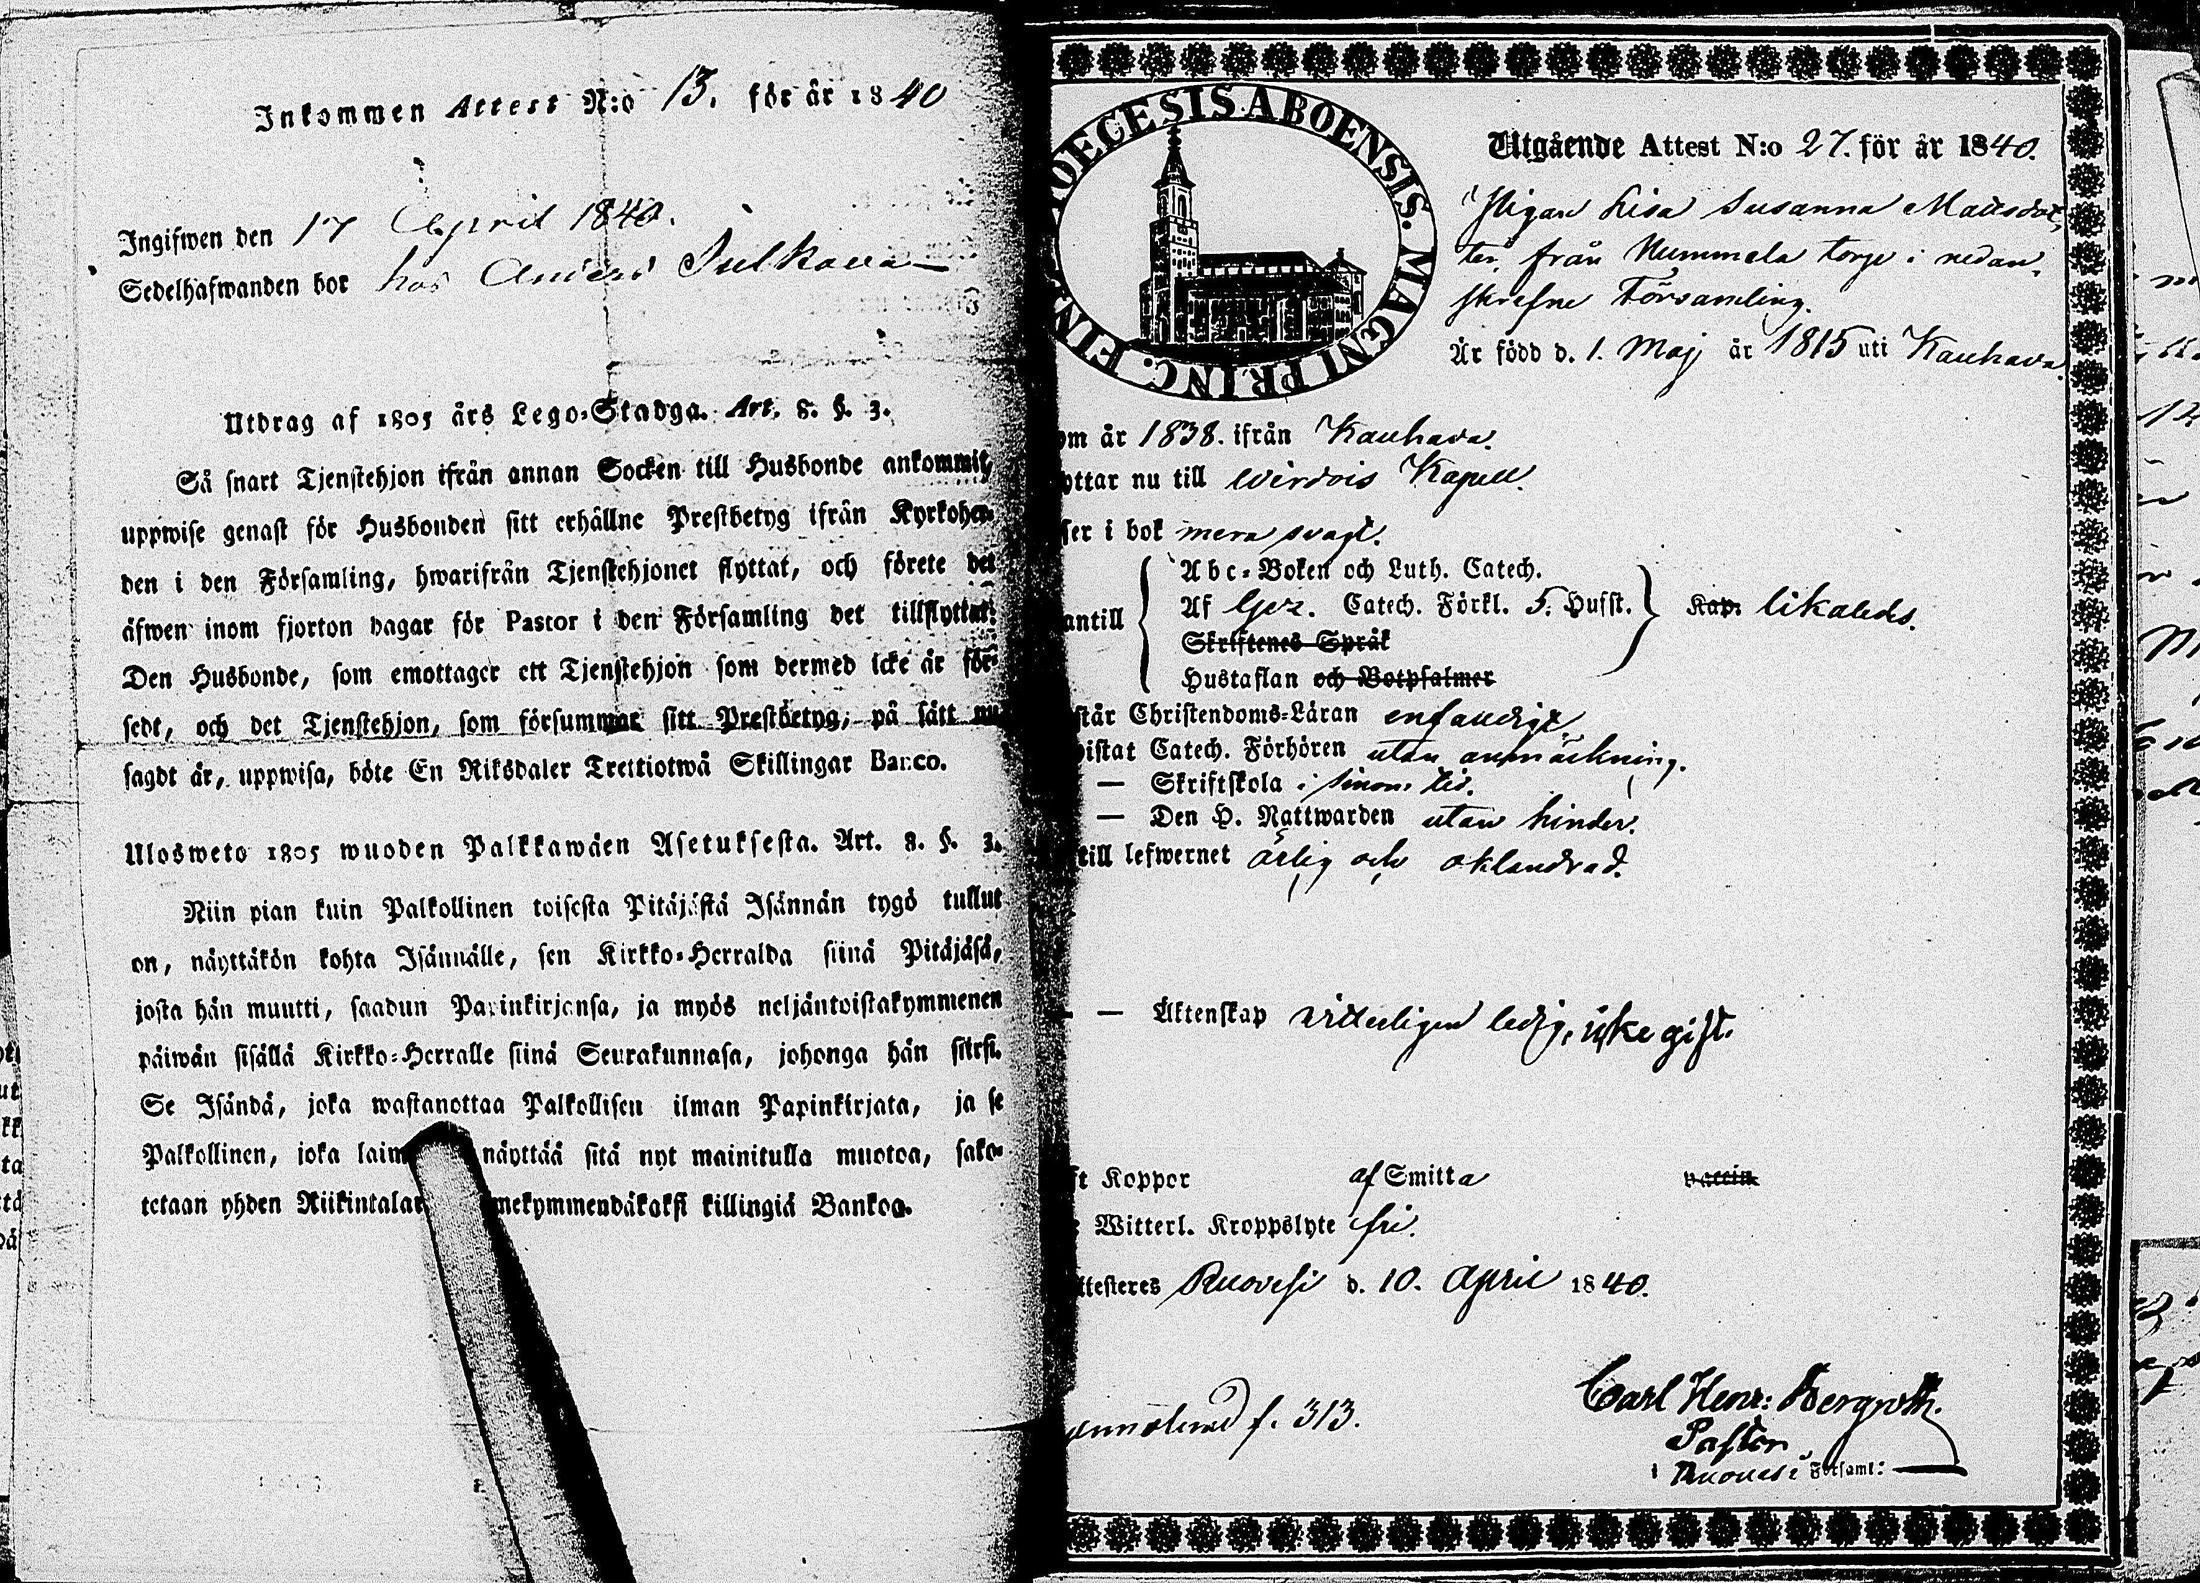 Inkommen Attest N:o 13. för år 1840
Ingifwen den 17 April 1840.
Sedelhafwanden bor hos Anders Julkova
Utdrag af 1805 års Lego-Stadga. Art. 8. §. 3.
Så snart Tjenstehjon ifrån annan Socken till Husbonde ankommit,
uppwise genast för Husbonden sitt erhållne Prestbetyg ifrån Kyrkoher-
den i den Församling, hwarifrån Tjenstehjonet flyttat, och förete det
äfwen inom fjorton dagar för Pastor i den Församling det tillflyttat.
Den Husbonde, som emottager ett Tjenstehjon som dermed icke är för-
sedt, och det Tjenstehjon, som försummar sitt Prestbetyg, på sätt nu
sagdt är, uppwisa, böte En Riksdaler Trettiotwå Skillingar Banco.
Ulosweto 1805 wuoden Palkkawäen Asetuksesta. Art. 8. §. 3.
Niin pian kuin Palkollinen toisesta Pitäjästä Isännän tygö tullut
on, näyttäkön kohta Isännälle, sen Kirkko-Herralda siinä Pitäjäsä,
josta hän muutti, saadun Papinkirjansa, ja myös neljäntoistakymmenen
päiwän sisällä Kirkko-Herralle siinä Seurakunnasa, johonga hän siirsi.
Se Isändä, joka wastanottaa Palkollisen ilman Papinkirjata, ja se
Palkollinen, joka laim näyttää sitä nyt mainitulla muotoa, sako-
tetaan yhden Riikintalar mekymmendäkaksi killingiä Bankoa.
DIOECESIS ABOENSIS. MAGNI PRINC. FINL.
Utgående Attest N:o 27. för år 1840.
Pigan Lisa Susanna Mattsdot-
ter, från Nummela torp i nedan-
skrefne Församling.
Är född d. 1. Maj år 1815 uti Kauhava.
om år 1838. ifrån Kauhava.
yttar nu till Wirdois Kapell.
ser i bok mera svagt.
Abc-Boken och Luth. Catech.
antill Af Gez. Catech. Förkl. 5. Husst. Kap. likaledes.
Skriftenes Språk
Hustaflan och Botpsalmer
står Christendoms-Läran enfaldigt.
istat Catech. Förhören utan anmärkning.
— Skriftskola i sinom tid.
— Den H. Nattwarden utan hinder.
till lefwernet ärlig och oklandrad.
— — Äktenskap vitterligen ledig, icke gift.
ft Koppor af Smitta vaccin
Witterl. Kroppslyte fri.
ttesteres Ruovesi d. 10. April 1840.
f. 313.
Carl Henr: Bergroth.
Pastor
i Ruovesi Församl: